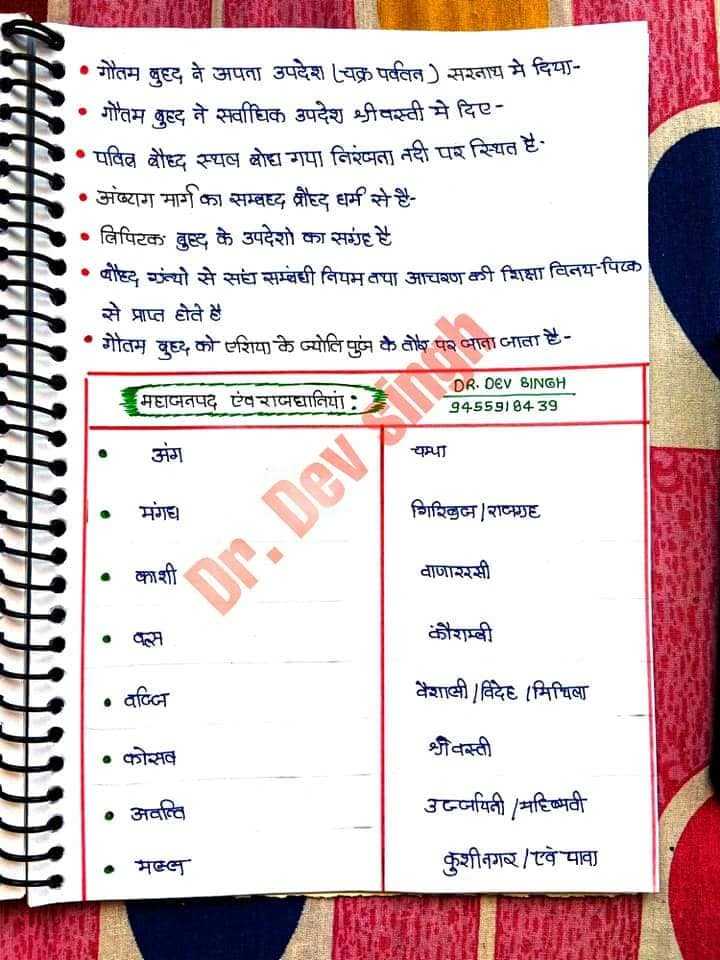 • गौतम बुध्द ने अपना उपदेश (चक्र पर्वतन) सरनाथ मे दिया-
• गौतम बुध्द ने सर्वाधिक उपदेश श्रीवस्ती मे दिए-
• पवित्र बौध्द स्थल बोध गया निरंजना नदी पर स्थित है-
• अंष्टाग मार्ग का सम्बध्द बौध्द धर्म से है-
• त्रिपिटक बुध्द के उपदेशो का सग्रंह है
• बौध्द ग्रंन्थो से संघ सम्बंधी नियम तथा आचरण की शिक्षा विनय-पिटक
से प्राप्त होते है
• गौतम बुध्द को एशिया के ज्योति पुंज के तौर पर जाना जाता है-
महाजनपद एंव राजधानियां :
DR. DEV SINGH
9455918439
• अंग चम्पा
• मंगध गिरिब्रज/राजग्रह
• काशी वाणाररसी
• वत्स कौशम्बी
• वज्जि वैशाली/विदेह/मिथिला
• कोसल श्रीवस्ती
• अवन्ति उज्जयिनी/महिष्मती
• मल्ल कुशीनगर/एवं पावा
Dr. Dev Singh